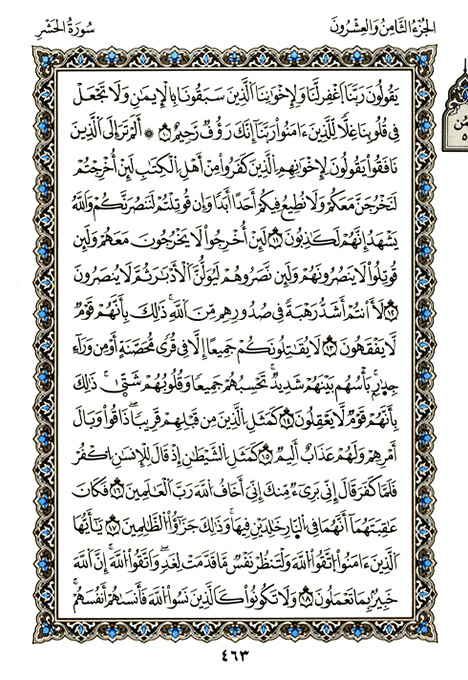 الجزء الثامن والعشرون
سورة الحشر
يَقُولُونَ رَبَّنَا اغْفِرْ لَنَا وَلِإِخْوَانِنَا الَّذِينَ سَبَقُونَا بِالْإِيمَانِ وَلَا تَجْعَلْ
فِي قُلُوبِنَا غِلًّا لِّلَّذِينَ ءَامَنُوا رَبَّنَا إِنَّكَ رَءُوفٌ رَّحِيمٌ ١٠ ۞ أَلَمْ تَرَ إِلَى الَّذِينَ
نَافَقُوا يَقُولُونَ لِإِخْوَانِهِمُ الَّذِينَ كَفَرُوا مِنْ أَهْلِ الْكِتَابِ لَئِنْ أُخْرِجْتُمْ
لَنَخْرُجَنَّ مَعَكُمْ وَلَا نُطِيعُ فِيكُمْ أَحَدًا أَبَدًا وَإِن قُوتِلْتُمْ لَنَنصُرَنَّكُمْ وَاللَّهُ
يَشْهَدُ إِنَّهُمْ لَكَاذِبُونَ ١١ لَئِنْ أُخْرِجُوا لَا يَخْرُجُونَ مَعَهُمْ وَلَئِن
قُوتِلُوا لَا يَنصُرُونَهُمْ وَلَئِن نَّصَرُوهُمْ لَيُوَلُّنَّ الْأَدْبَارَ ثُمَّ لَا يُنصَرُونَ
١٢ لَأَنتُمْ أَشَدُّ رَهْبَةً فِي صُدُورِهِم مِّنَ اللَّهِ ۚ ذَٰلِكَ بِأَنَّهُمْ قَوْمٌ
لَّا يَفْقَهُونَ ١٣ لَا يُقَاتِلُونَكُمْ جَمِيعًا إِلَّا فِي قُرًى مُّحَصَّنَةٍ أَوْ مِن وَرَاءِ
جُدُرٍ ۚ بَأْسُهُم بَيْنَهُمْ شَدِيدٌ ۚ تَحْسَبُهُمْ جَمِيعًا وَقُلُوبُهُمْ شَتَّىٰ ۚ ذَٰلِكَ
بِأَنَّهُمْ قَوْمٌ لَّا يَعْقِلُونَ ١٤ كَمَثَلِ الَّذِينَ مِن قَبْلِهِمْ قَرِيبًا ۖ ذَاقُوا وَبَالَ
أَمْرِهِمْ وَلَهُمْ عَذَابٌ أَلِيمٌ ١٥ كَمَثَلِ الشَّيْطَانِ إِذْ قَالَ لِلْإِنسَانِ اكْفُرْ
فَلَمَّا كَفَرَ قَالَ إِنِّي بَرِيءٌ مِّنكَ إِنِّي أَخَافُ اللَّهَ رَبَّ الْعَالَمِينَ ١٦ فَكَانَ
عَاقِبَتَهُمَا أَنَّهُمَا فِي النَّارِ خَالِدَيْنِ فِيهَا ۚ وَذَٰلِكَ جَزَاؤُا الظَّالِمِينَ ١٧ يَا أَيُّهَا
الَّذِينَ ءَامَنُوا اتَّقُوا اللَّهَ وَلْتَنظُرْ نَفْسٌ مَّا قَدَّمَتْ لِغَدٍ ۖ وَاتَّقُوا اللَّهَ ۚ إِنَّ اللَّهَ
خَبِيرٌ بِمَا تَعْمَلُونَ ١٨ وَلَا تَكُونُوا كَالَّذِينَ نَسُوا اللَّهَ فَأَنسَاهُمْ أَنفُسَهُمْ ۚ
٤٦٣